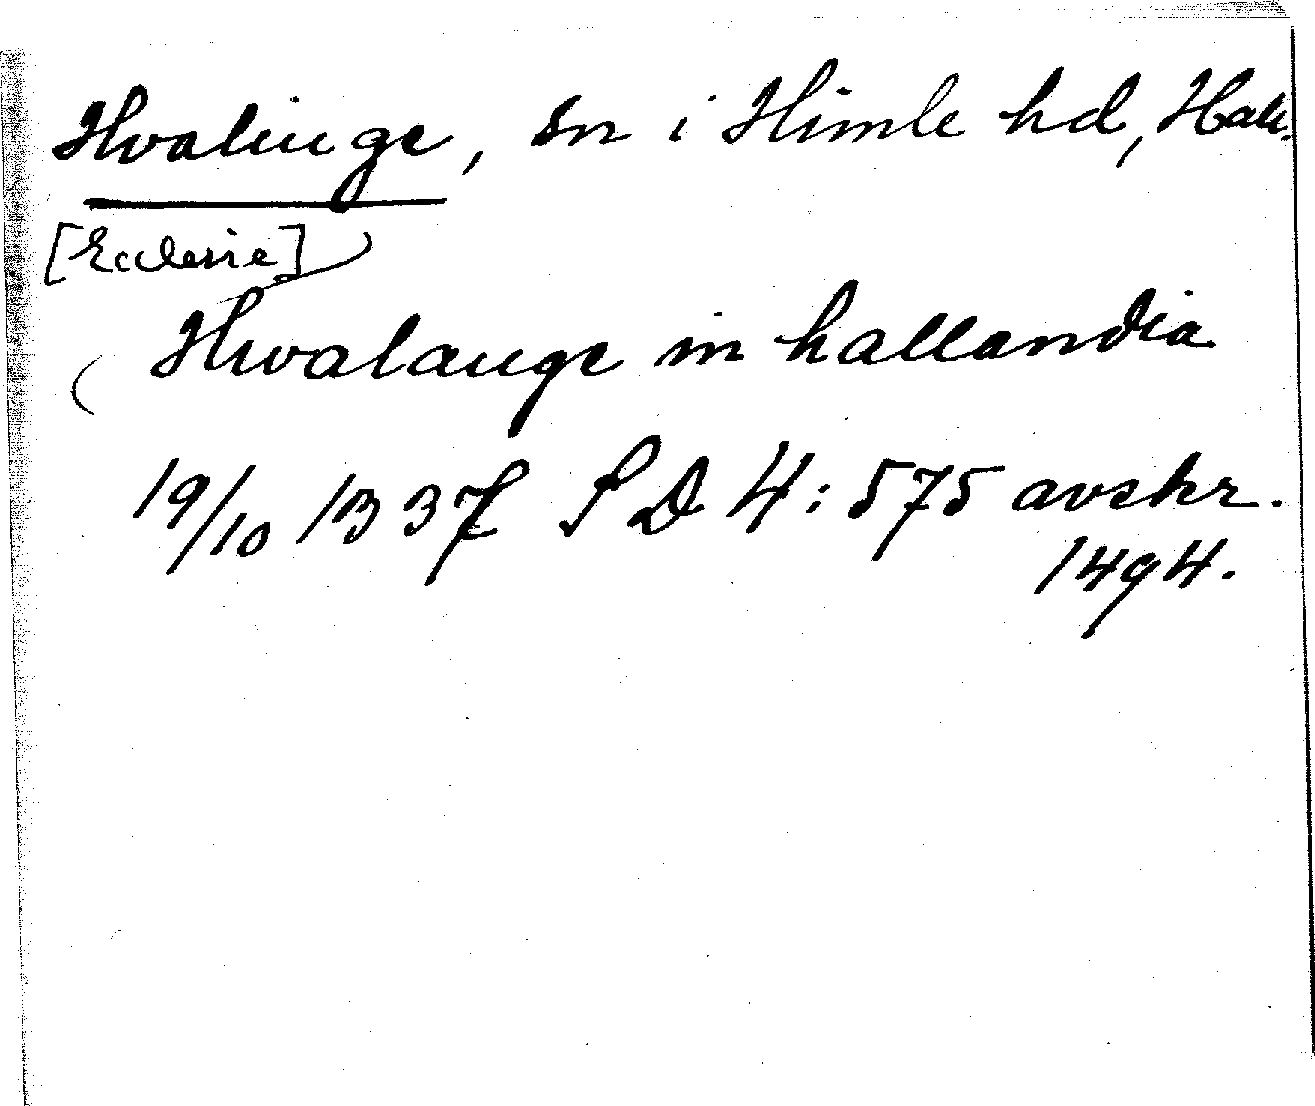 Hvalinge, sn i Himle hd, Hall.
[Ecclesie]
Hwalange in hallandia
19/10 1337 SD 4:575 avskr.
1494.